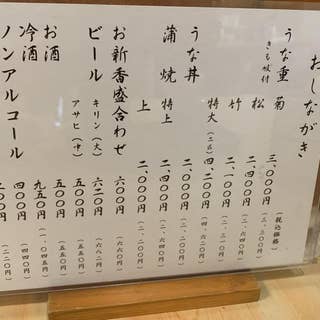 おしながき
うな重 菊 三、〇〇〇円(三、三〇〇円)
(税込価格)
きも吸付
松 二、四〇〇円(二、六四〇円)
竹 二、一〇〇円(二、三一〇円)
特大 四、二〇〇円(四、六二〇円)
うな丼 二、〇〇〇円(二、二〇〇円)
蒲焼 特上
上 二、〇〇〇円(二、二〇〇円)
お新香盛合わせ 六〇〇円(六六〇円)
ビール キリン(大) 六二〇円(六八二円)
アサヒ(中) 五〇〇円(五五〇円)
お酒 五〇〇円(五五〇円)
冷酒 九五〇円(一、〇四五円)
ノンアルコール 四〇〇円(四四〇円)
二〇〇円(二二〇円)